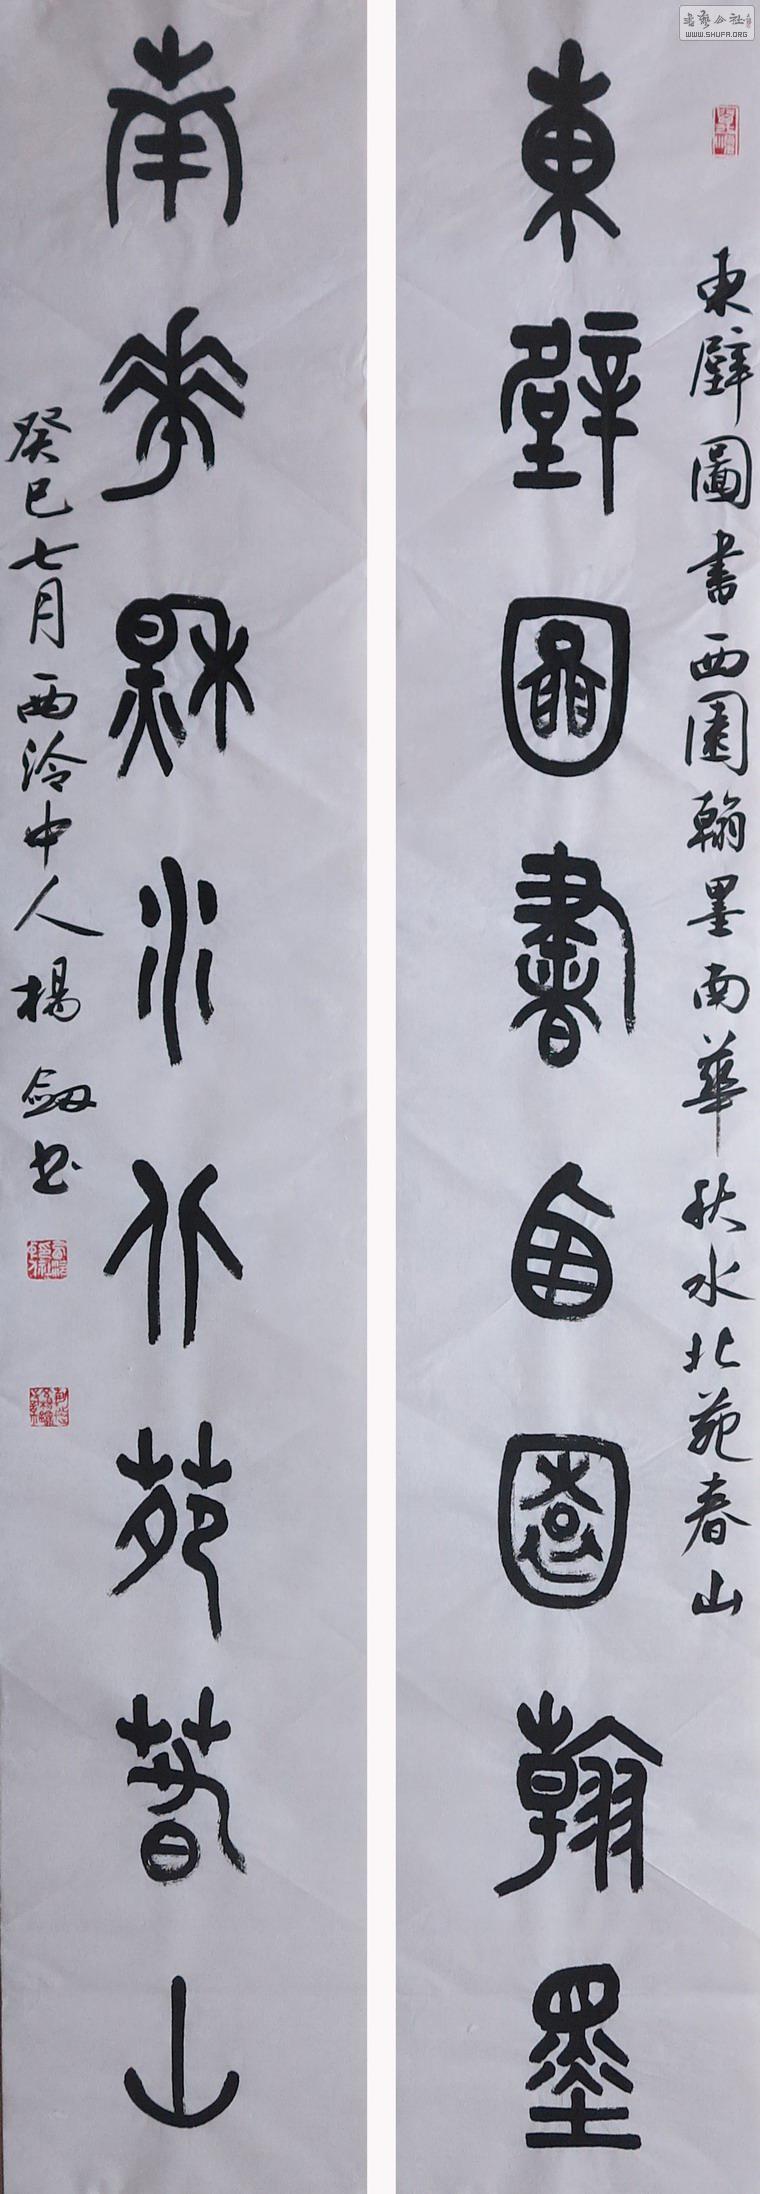 東壁圖書西園翰墨
東壁圖書西園翰墨南華秋水北苑春山
南華秋水北苑春山
癸巳七月西泠中人楊劍书
書藝公社
WWW.SHUFA.ORG